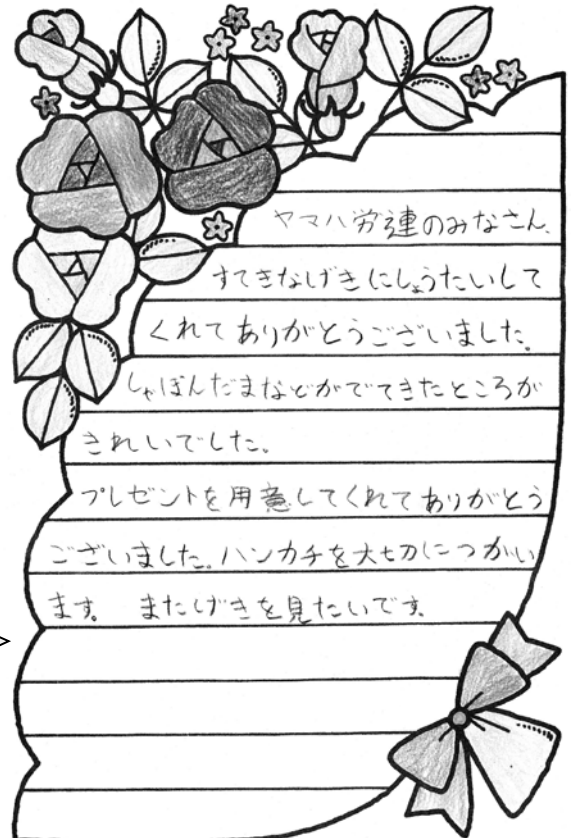 ヤマハ労連のみなさん、
すてきなげきにしょうたいして
くれてありがとうございました。
しゃぼんだまなどがでてきたところが
きれいでした。
プレゼントを用意してくれてありがとう
ございました。ハンカチを大切につかい
ます。 またげきを見たいです。